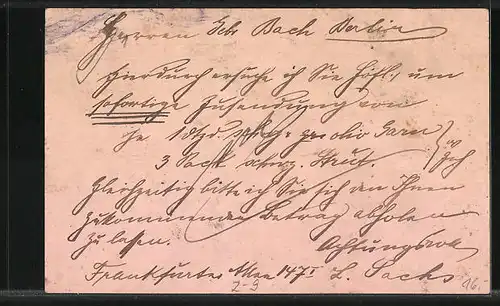 Herren Gebr. Bach Berlin
Hierdurch ersuche ich Sie höfl., um
sofortige Zusendung von
je 1 Dtzd.
3 Pack
Gleichzeitig bitte ich Sie sich den Ihnen
zukommenden Betrag abholen
zu lassen.
Achtungsvoll
Frankfurter Allee 147I L. Sachs
Z-9
96.